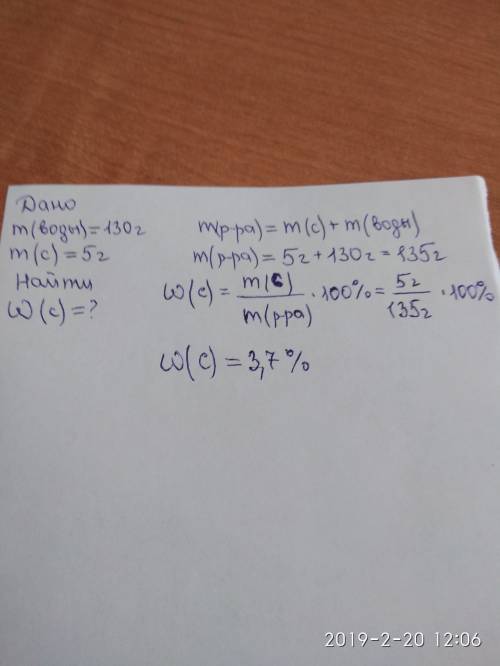 Дано
m(воды)=130г
m(с)=5г
Найти
W(с)=?
m(р-ра)=m(с)+m(воды)
m(р-ра)=5г+130г=135г
W(с)=m(с)/m(р-ра)·100%=5г/135г·100%
W(с)=3,7%
2019-2-20 12:06